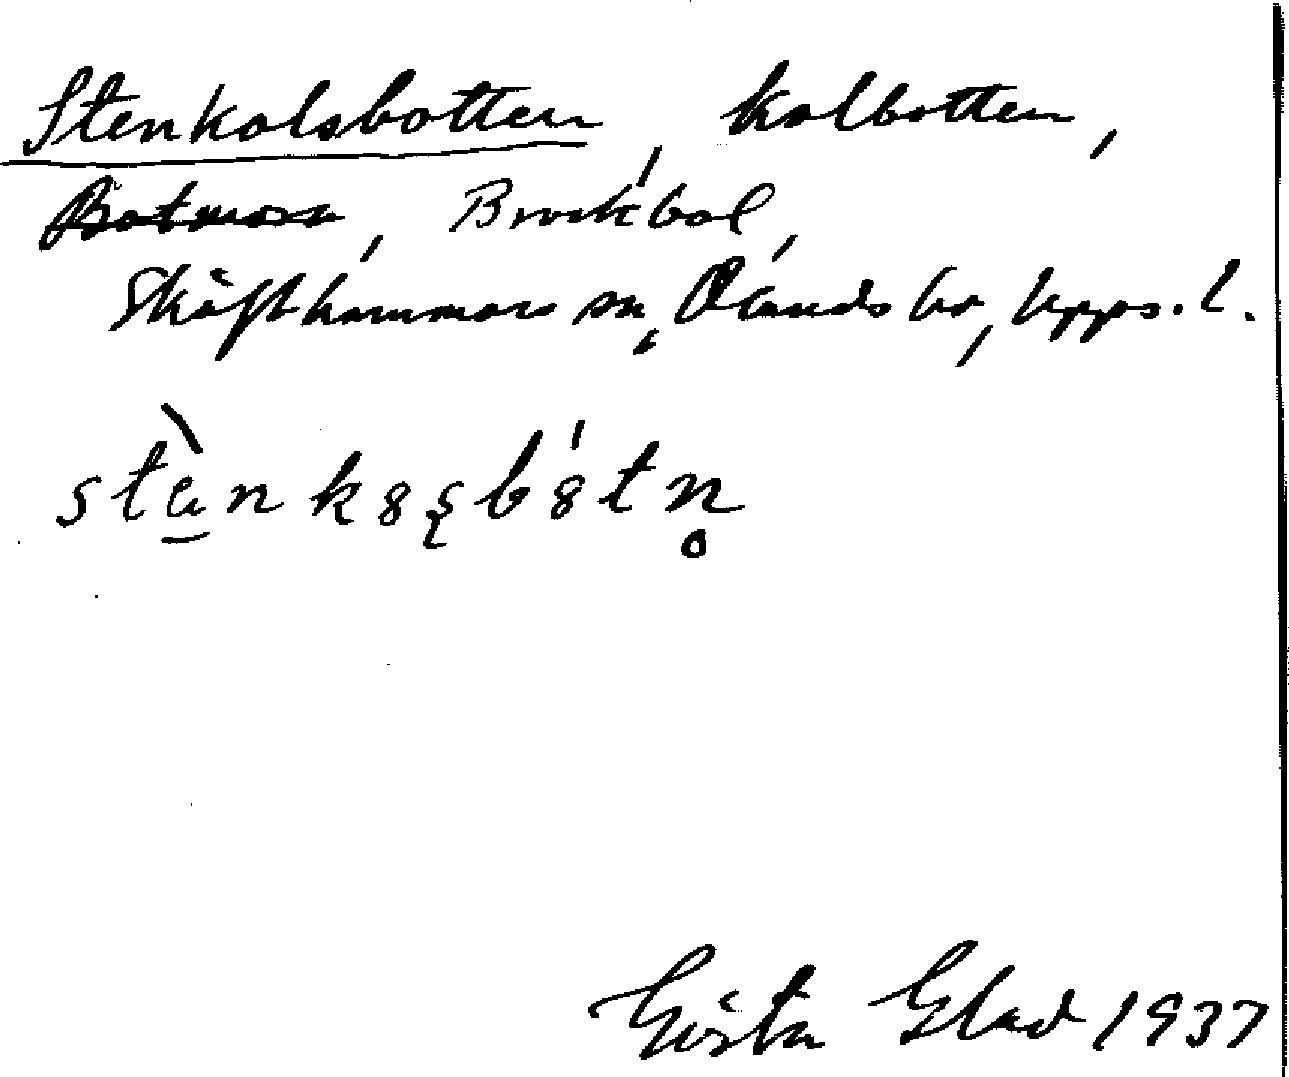 Stenkolsbotten, kolbotten,
Botmora, Bruckbol,
Skäfthammars sn, Olands hd, Upps. l.
stènkꝏsbꝏtn̥
Gösta Glad 1937